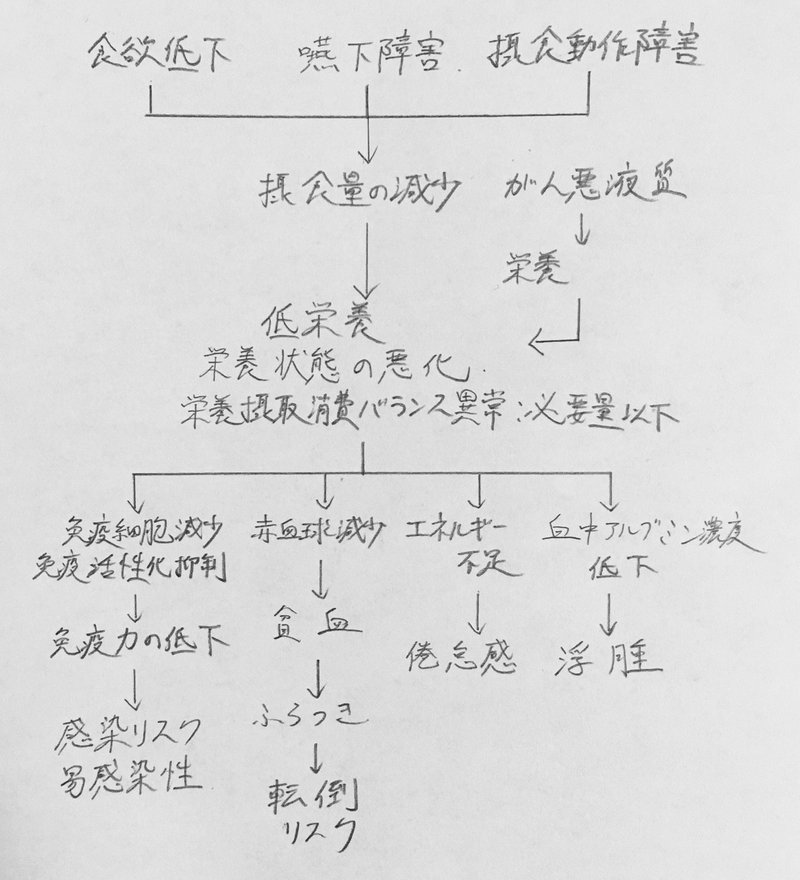 食欲低下 嚥下障害 摂食動作障害
摂食量の減少 がん悪液質
栄養
低栄養
栄養状態の悪化
栄養摂取消費バランス異常:必要量以下
免疫細胞減少 赤血球減少 エネルギー 血中アルブミン濃度
免疫活性化抑制 不足 低下
免疫力の低下 貧血 倦怠感 浮腫
感染リスク ふらつき
易感染性 転倒
リスク